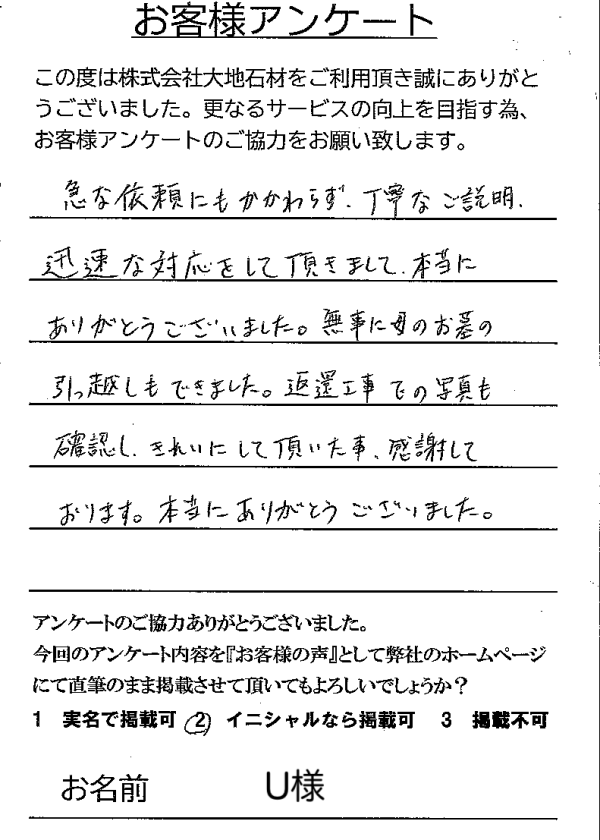 お客様アンケート
この度は株式会社大地石材をご利用頂き誠にありがと
うございました。更なるサービスの向上を目指す為、
お客様アンケートのご協力をお願い致します。
急な依頼にもかかわらず、丁寧なご説明、
迅速な対応をして頂きまして、本当に
ありがとうございました。無事に母のお墓の
引っ越しもできました。返還工事での写真も
確認し、きれいにして頂いた事、感謝して
おります。本当にありがとうございました。
アンケートのご協力ありがとうございました。
今回のアンケート内容を『お客様の声』として弊社のホームページ
にて直筆のまま掲載させて頂いてもよろしいでしょうか？
1 実名で掲載可 2 イニシャルなら掲載可 3 掲載不可
お名前 U様